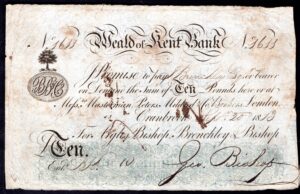 No 7611 Weald of Kent Bank No 7611
I Promise to pay or bearer
on Demand the Sum of Ten Pounds here or at
Messrs Masterman Peters Mildred & Co Bankers London
Cranbrook 1813
For Bishop, Brenchley & Bishop
Ten.
Entd
Geo. Bishop